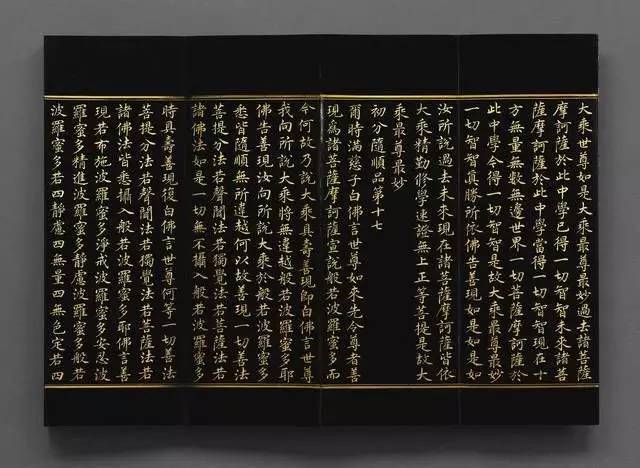 大乘世尊如是大乘最尊最妙過去諸菩薩
摩訶薩於此中學已得一切智智未來諸菩
薩摩訶薩於此中學當得一切智智現在十
方無量無數無邊世界一切菩薩摩訶薩於
此中學今得一切智智是故大乘最尊最妙
一切智智眞勝所依佛告善現如是如是如
汝所說過去未來現在諸菩薩摩訶薩皆依
大乘精勤修學速證無上正等菩提是故大
乘最尊最妙
初分隨順品第十七
爾時滿慈子白佛言世尊如來先令尊者善
現爲諸菩薩摩訶薩宣說般若波羅蜜多而
今何故乃說大乘具壽善現即白佛言世尊
我向所說大乘將無違越般若波羅蜜多耶
佛告善現汝向所說大乘於般若波羅蜜多
悉皆隨順無所違越何以故善現一切善法
菩提分法若聲聞法若獨覺法若菩薩法若
諸佛法如是一切無不攝入般若波羅蜜多
時具壽善現復白佛言世尊何等一切善法
菩提分法若聲聞法若獨覺法若菩薩法若
諸佛法皆悉攝入般若波羅蜜多耶佛言善
現若布施波羅蜜多淨戒波羅蜜多安忍波
羅蜜多精進波羅蜜多靜慮波羅蜜多般若
波羅蜜多若四靜慮四無量四無色定若四